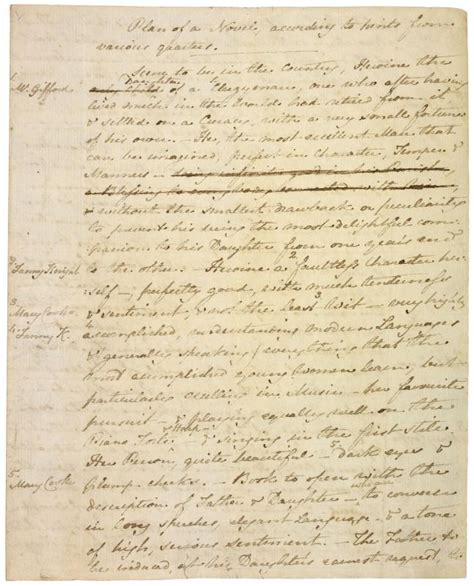 Plan of a Novel, according to hints from
various quarters.
1 Mr. Gifford
Scene to be in the Country, Heroine the
Daughter
of a Clergyman, one who after having
lived much in the World had retired from it
& settled on a Curacy, with a very small fortune
of his own. — He, the most excellent Man that
can be imagined, perfect in Character, Temper &
Manners —
& without the smallest drawback or peculiarity
to prevent his being the most delightful com-
-panion to his Daughter from one year's end
2 Fanny Knight
to the other. — Heroine a 2 faultless Character her-
-self —, perfectly good, with much tenderness
3 Mary Cooke
& sentiment, & not the 3 least Wit — very 4 highly
4 Fanny K.
accomplished, understanding modern Languages
& (generally speaking) everything that the
most accomplished young Women learn, but
particularly excelling in Music — her favourite
pursuit — & playing equally well on the
Piano Forte & Harp — & Singing in the first stile.
Her Person, quite beautiful — dark eyes &
5 Mary Cooke
plump cheeks. — Book to open with the
description of Father & Daughter — to converse
in long speeches, elegant Language — & a tone
of high, serious sentiment. — The Father to
be induced, at his Daughter's earnest request, to